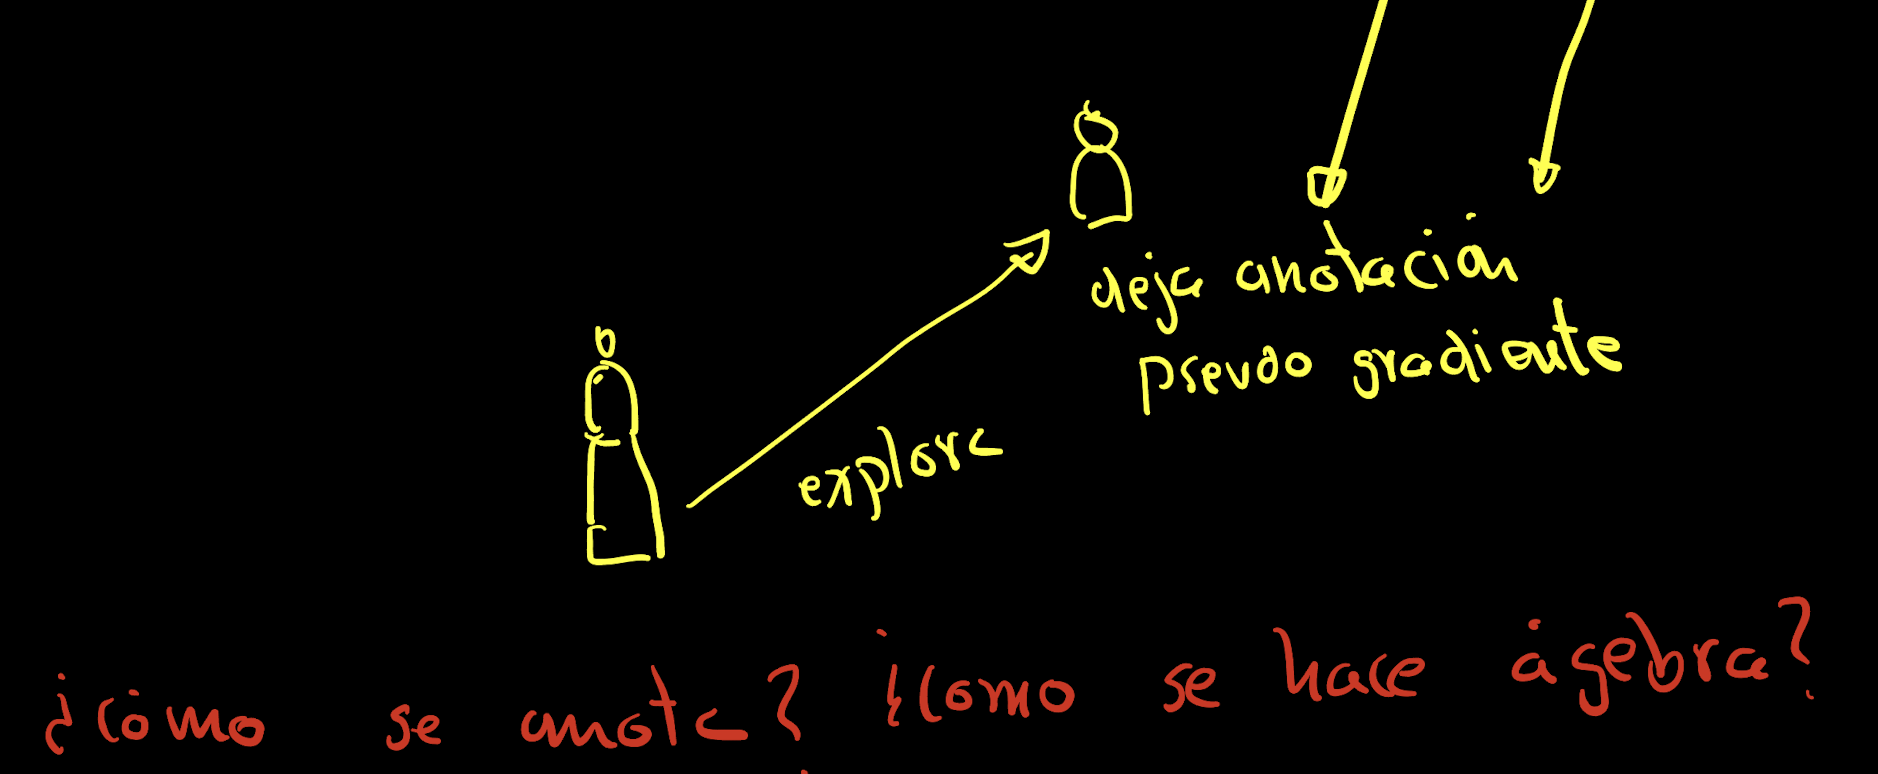 deja anotación
pseudo gradiente
explora
¿cómo se anota? ¿Como se hace ágebra?